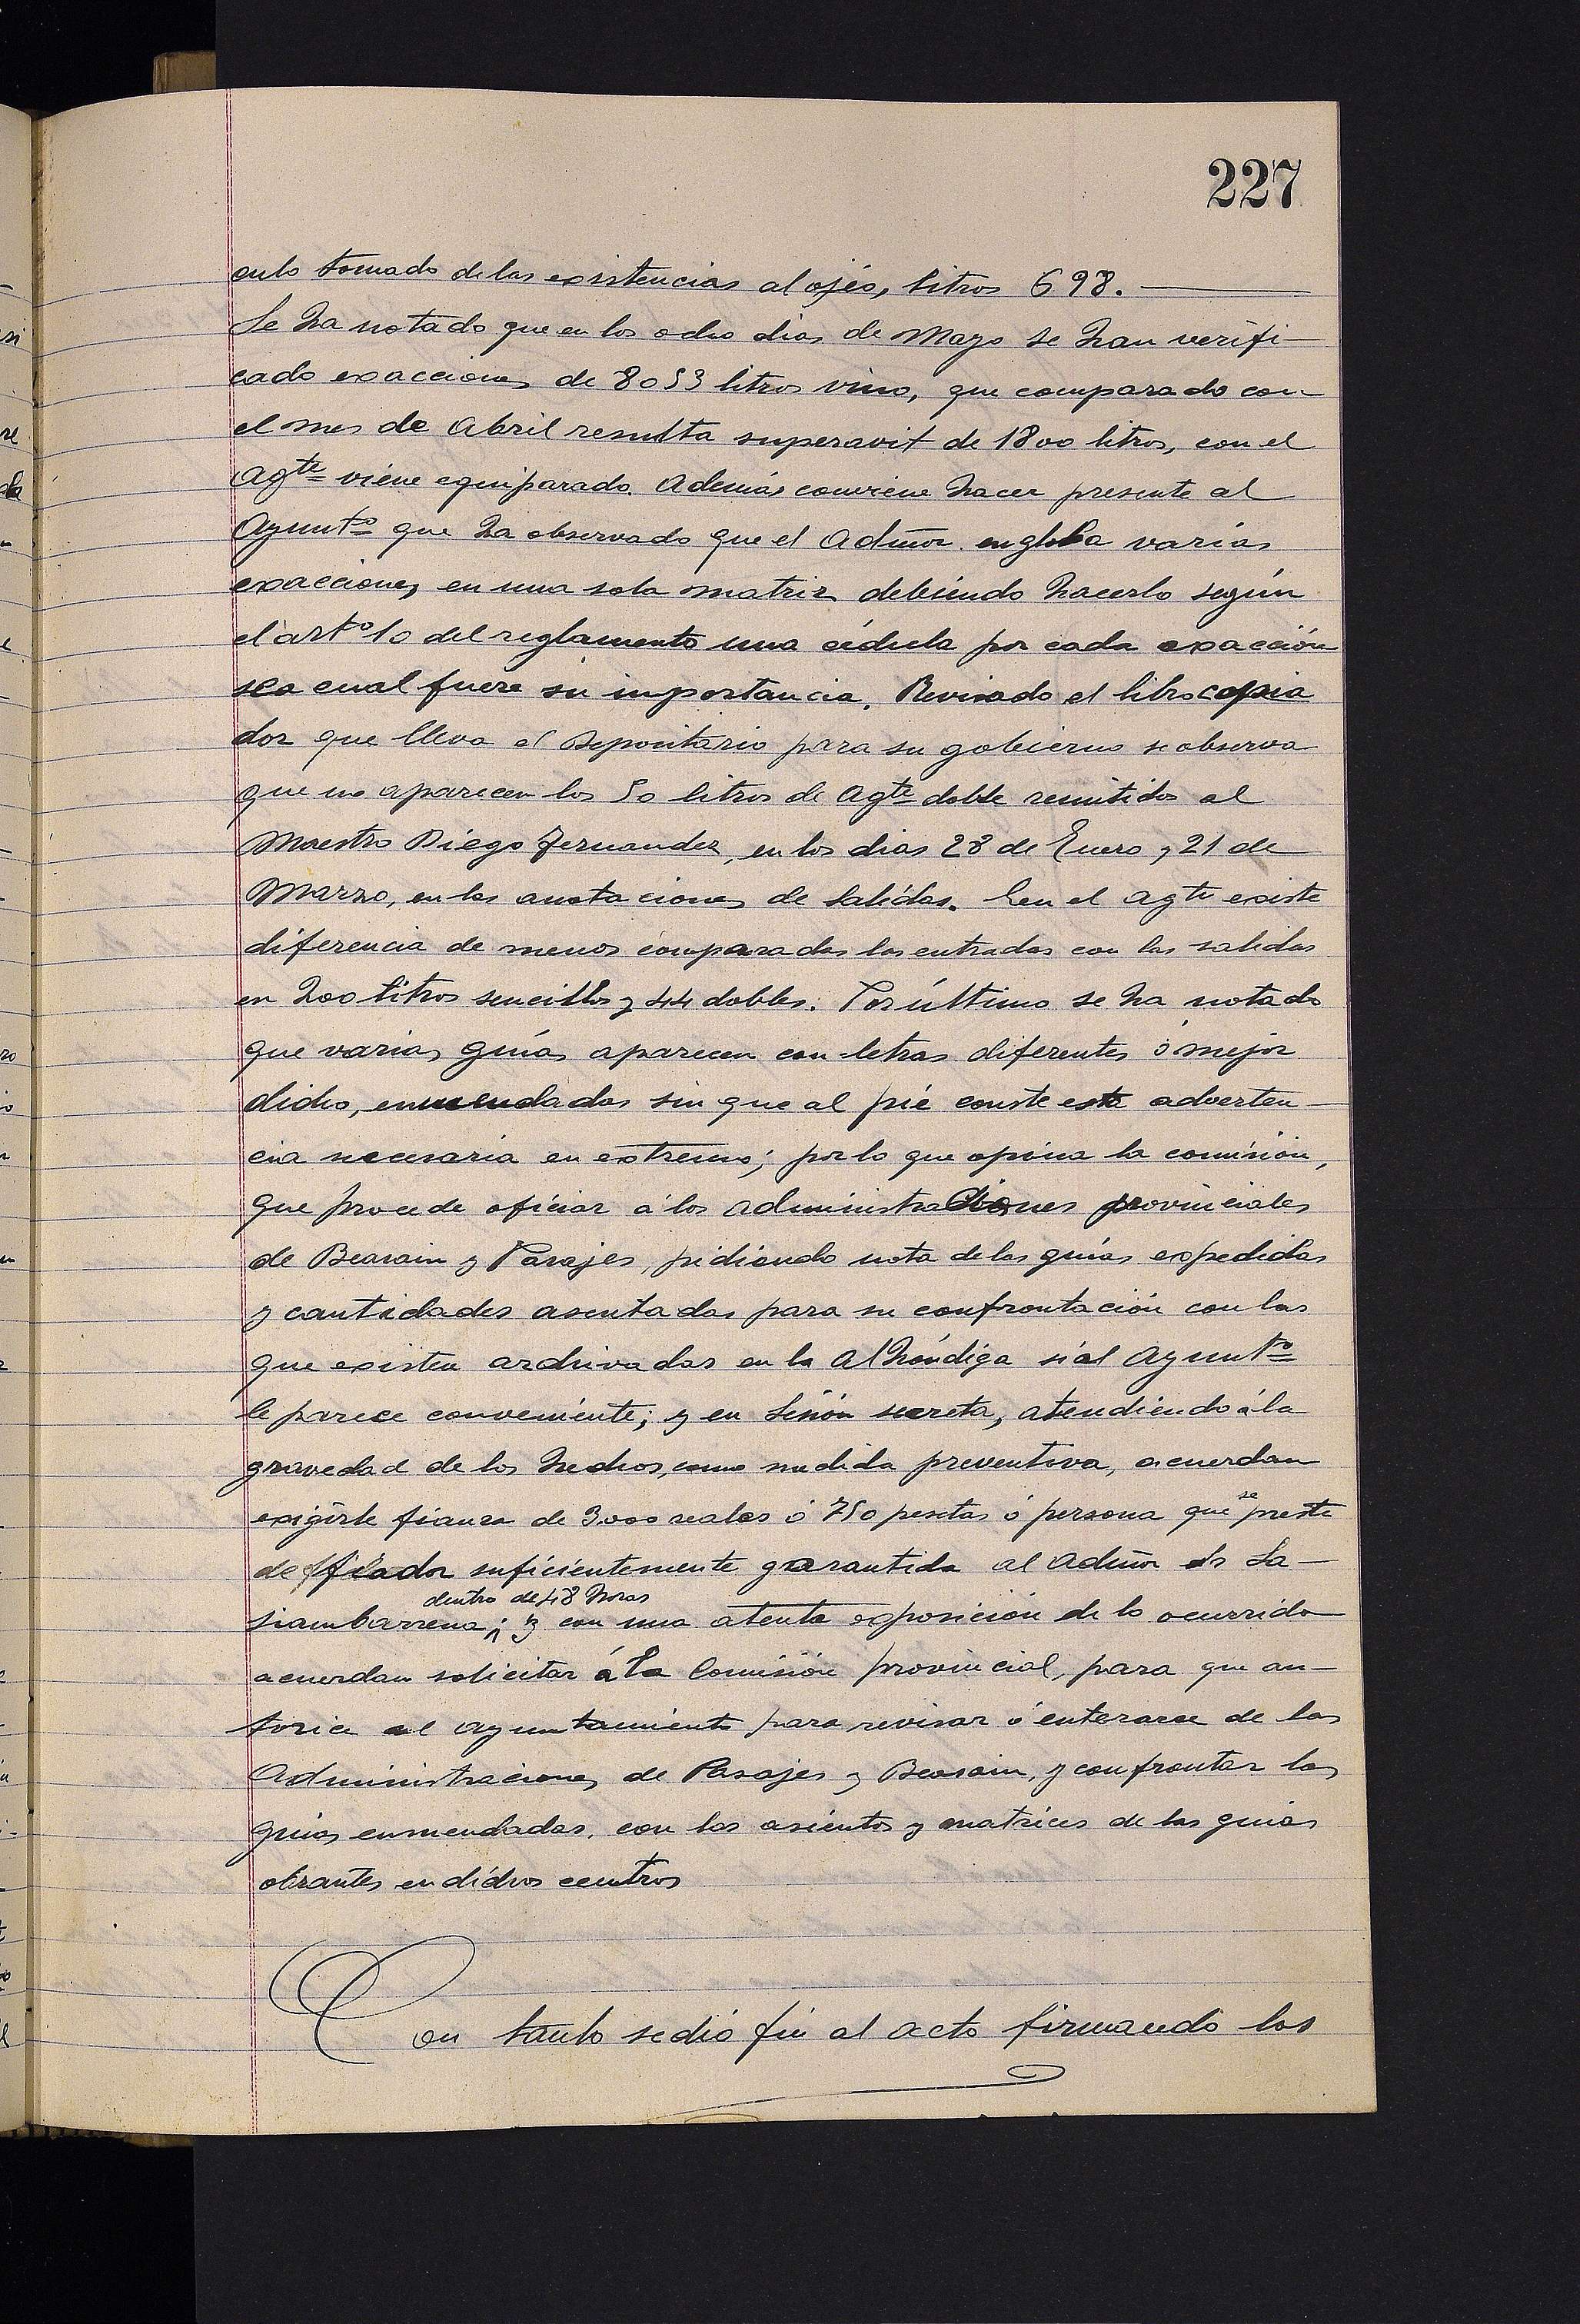 227
culo tomado de las existencias al ojéo, litros 698.
Se ha notado que en los ocho dias de Mayo se han verifi-
cado exacciones de 8053 litros vino, que comparado con
el mes de Abril resulta superavit de 1800 litros, con el
Agte viene equiparado. Además conviene hacer presente al
Ayuntº que ha observado que el Admor. engloba varias
exacciones en una sola matriz debiendo hacerlo según
el artº 10 del reglamento una cédula por cada exacción
sea cual fuere su importancia. Revisado el libro copia
dor que lleva el Depositario para su gobierno se observa
que no aparecen los 50 litros de Agte doble remitidos al
Maestro Diego Fernandez, en los dias 28 de Enero y 21 de
Marzo, en las anotaciones de Salidas. En el agte existe
diferencia de menos comparadas las entradas con las salidas
en 200 litros sencillos y 44 dobles. Por último se ha notado
que varias guías aparecen con letras diferentes ó mejor
dicho, enmendadas sin que al pié conste esta adverten-
cia necesaria en extremo; por lo que opina la comisión,
que procede oficiar á los administraciones provinciales
de Beasain y Pasajes, pidiendo nota de las guías expedidas
y cantidades asentadas para su confrontación con las
que existen archivadas en la Alhóndiga si al Ayuntº
le parece conveniente; y en Sesión secreta, atendiendo á la
gravedad de los hechos, como medida preventiva, acuerdan
exigirle fianza de 3.000 reales ó 750 pesetas ó persona que se preste
de fiador suficientemente garantida al Admor de Sa-
siambarrena; dentro de 48 horas y con una atenta exposición de lo ocurrido
acuerdan solicitar á la Comisión provincial, para que au-
torice al ayuntamiento para revisar ó enterarse de las
Administraciones de Pasajes y Beasain, y confrontar las
guias enmendadas, con los asientos y matrices de las guias
obrantes en dichos centros
Con tanto se dió fin al acto firmando los